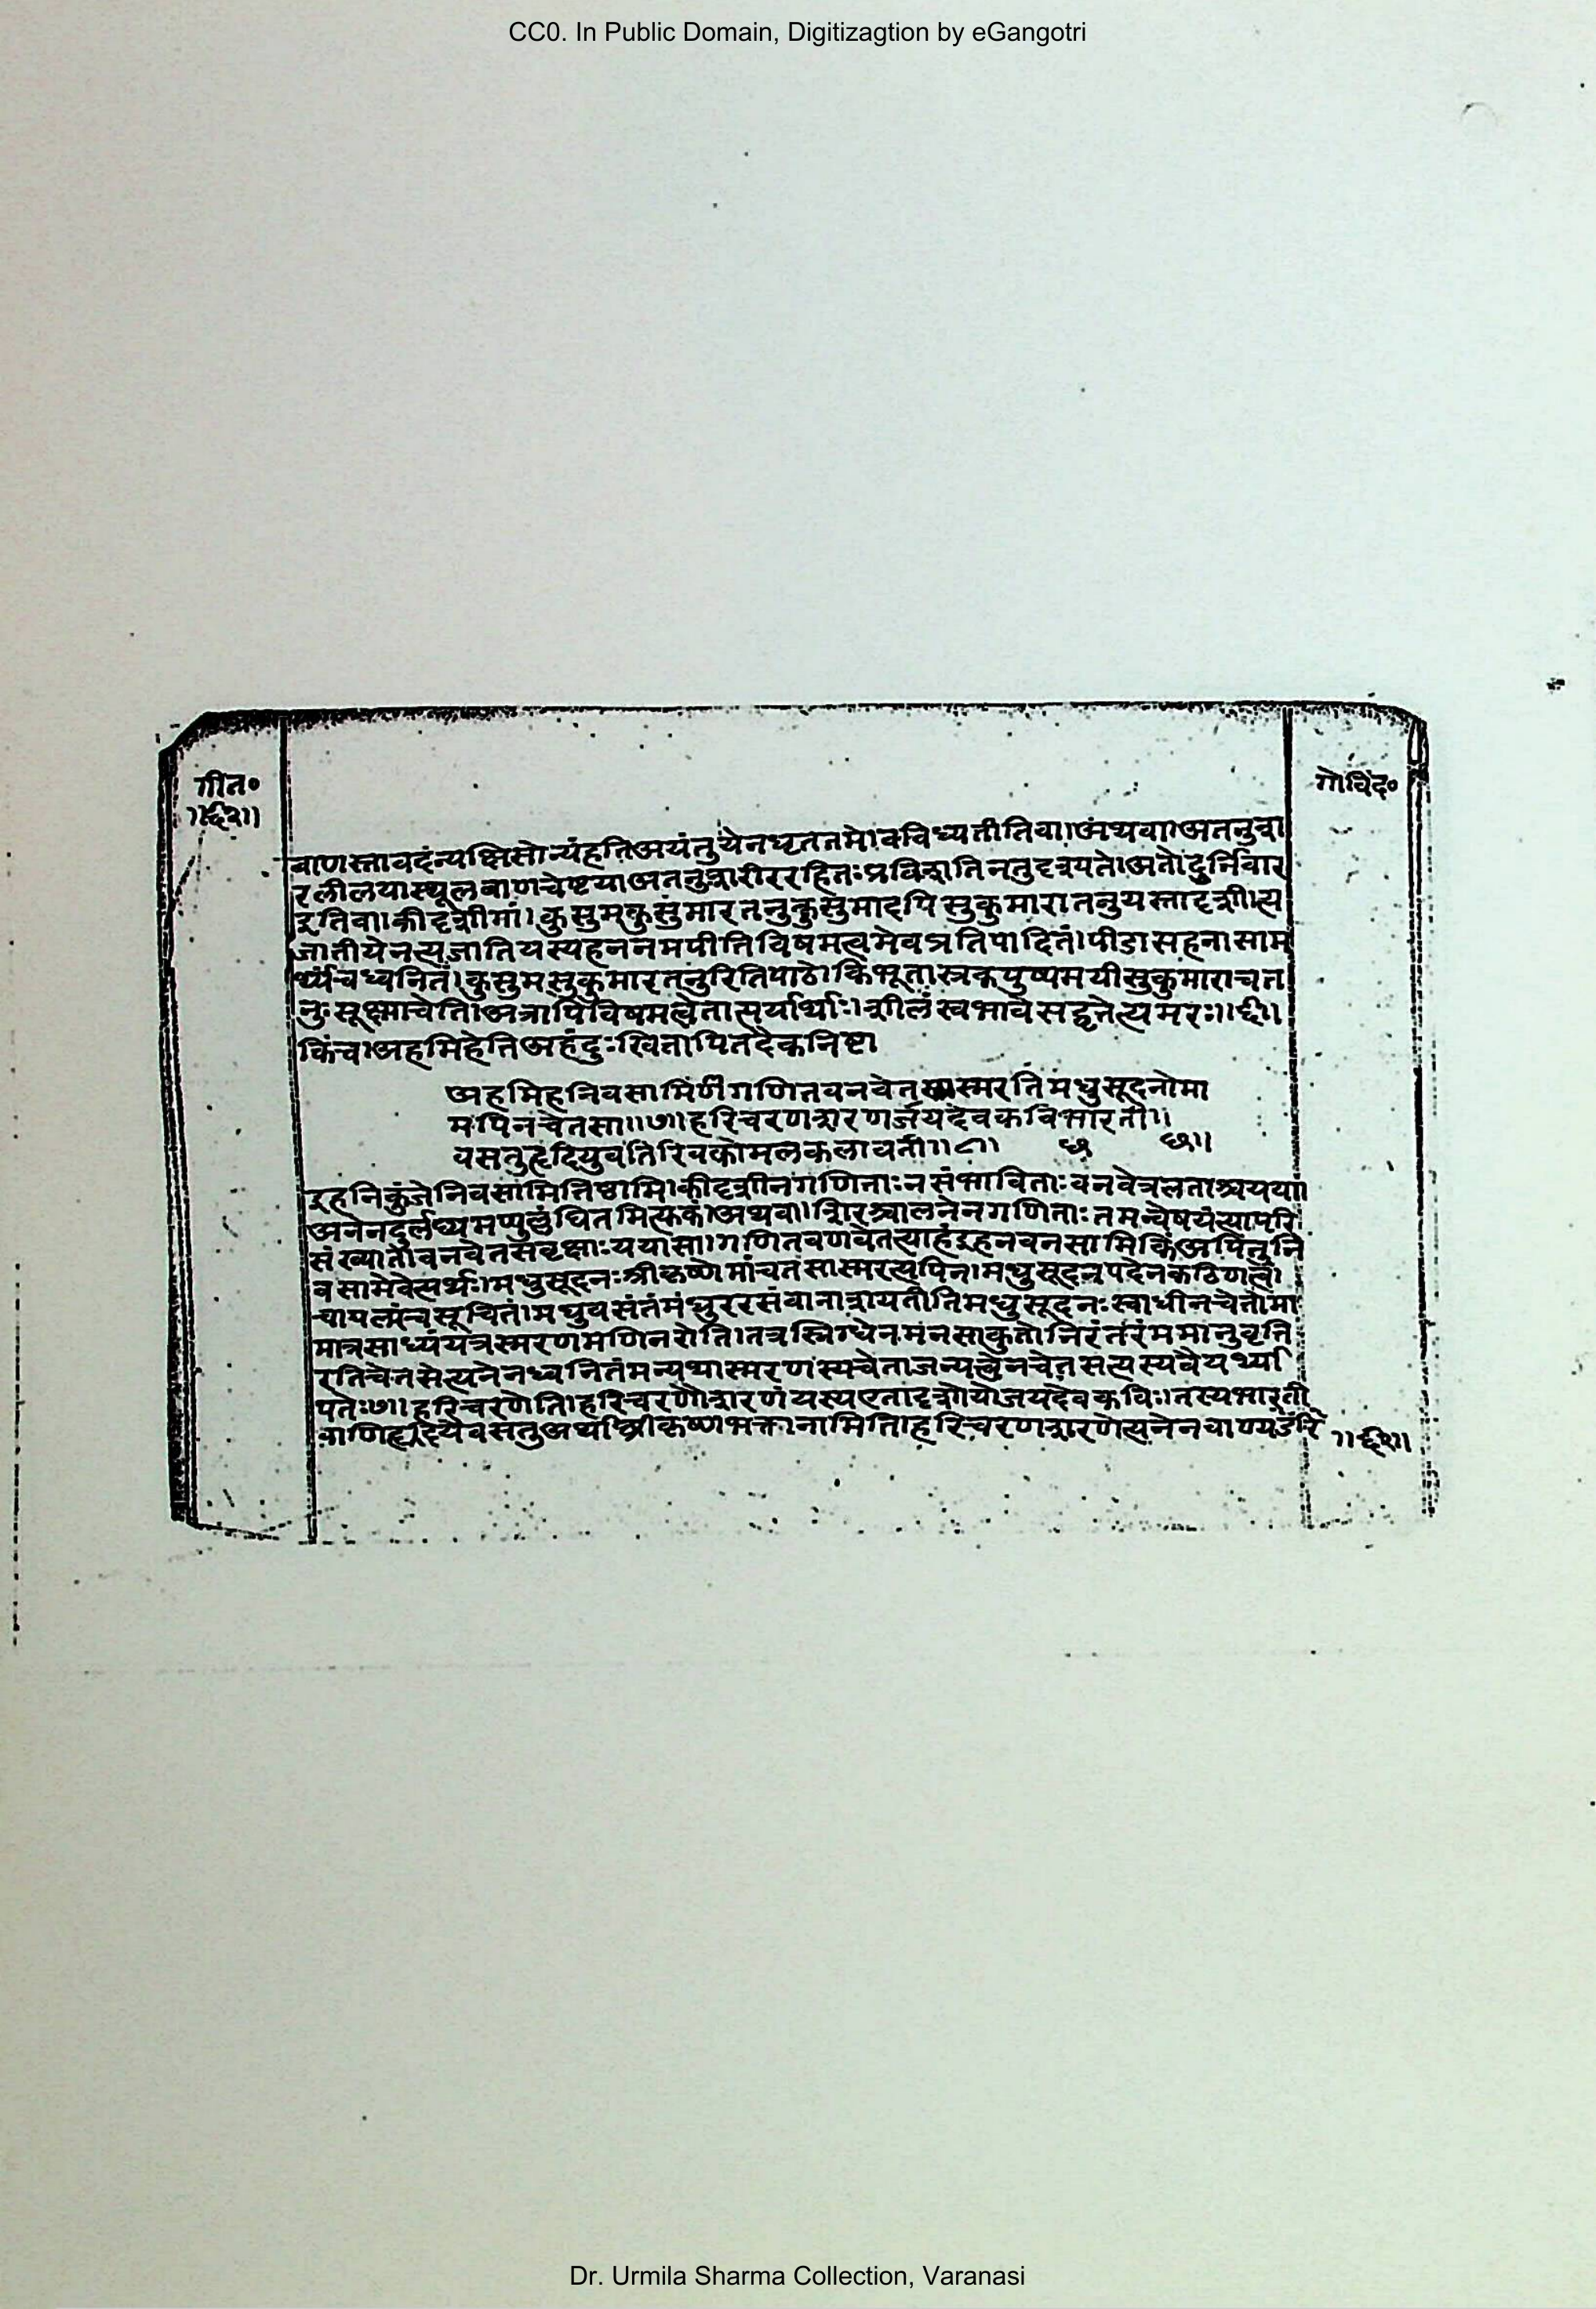 CC0. In Public Domain, Digitizagtion by eGangotri
गीत०
॥६२॥
गोविंद०
बाणस्तावदंन्यक्षिसोन्यंहतिअयंतुयेनधृततमेवविध्यतीतिवा।अंथवा।अतनुशा
रलीलयास्थूलबाणचेष्टया।अतनुशारीररहितःप्रविशातिनतुदृश्यते।अतोदुर्निवार
इतिवा।कीदृशीमां।कुसुमकुसुंमारतनुकुसुमादपिसुकुमारातनुयस्तादृशी।त्य
जातीयेनत्यजातियस्यहननमपीतिविषमत्वमेवप्रतिपादितं।पीडासहनासाम
र्थ्यंचध्वनितं।कुसुमसुकुमारतनुरितिपाठे।किंभूतास्रक्पुष्पमयीसुकुमाराचत
नुःसूक्ष्माचेति।अत्रापिविषमत्वेतात्पर्यार्थाः।शीलंस्वभावेसद्वृत्तेत्यमरः॥६॥
किंच।अहमिहेतिअहंदुःखितापितदैकनिष्टा
अहमिहनिवसामिणिगणितवनवेतसास्मरतिमधुसूदनोमा
मपिनचेतसा॥७॥हरिचरणशरणजयदेवकविभारती॥
वसतुहृदियुवतिरिवकोमलकलावती॥८॥ छ छ॥
इहनिकुंजेनिवसामितिष्ठामि।कीदृशीनगणिताःनसंभाविताःवनवेत्रलताश्चयया।
अनेनदुर्लघ्यमप्पुल्लंघितमित्यक्तं।अथवा।शिरश्चालनेनगणिताःतमन्वेषयंत्यापरि
संख्यातोवनवेतसवृक्षाःययासा।गणितवणवेतस्याहंइहनवनसामिकिंअपितुनि
वसामेवेत्यर्थः।मधुसूदनःश्रीकृष्णोमांचतसास्मरत्यपिन।मधुसूदनपदेनकठिणत्वं
चापलंच्चसूचितं।मधुवसंतंमंधुररसंवानाशयतीतिमधुसूदनःस्वाधीनचेतोमा
मात्रसाध्यंयत्रस्मरणमणिनरोति।तत्रस्निग्धेनमनसाकुतोनिरंतरंममानुवृत्ति
रतिचेतसेत्यनेनध्वनितंमन्यथास्मरणस्यचेताजन्यत्वेनचेतसत्यस्यवैयर्थ्या
पतेः७॥हरिचरणेति।हरिचरणौशरणंयस्यएतादृशोयोजयदेवकविः।तस्यभारती
वाणिहृदियेवसतुअर्थाश्रीकृष्णभक्तानामिति।हरिचरणशरणेत्यनेनचाण्यउंमि
॥६२॥
Dr. Urmila Sharma Collection, Varanasi